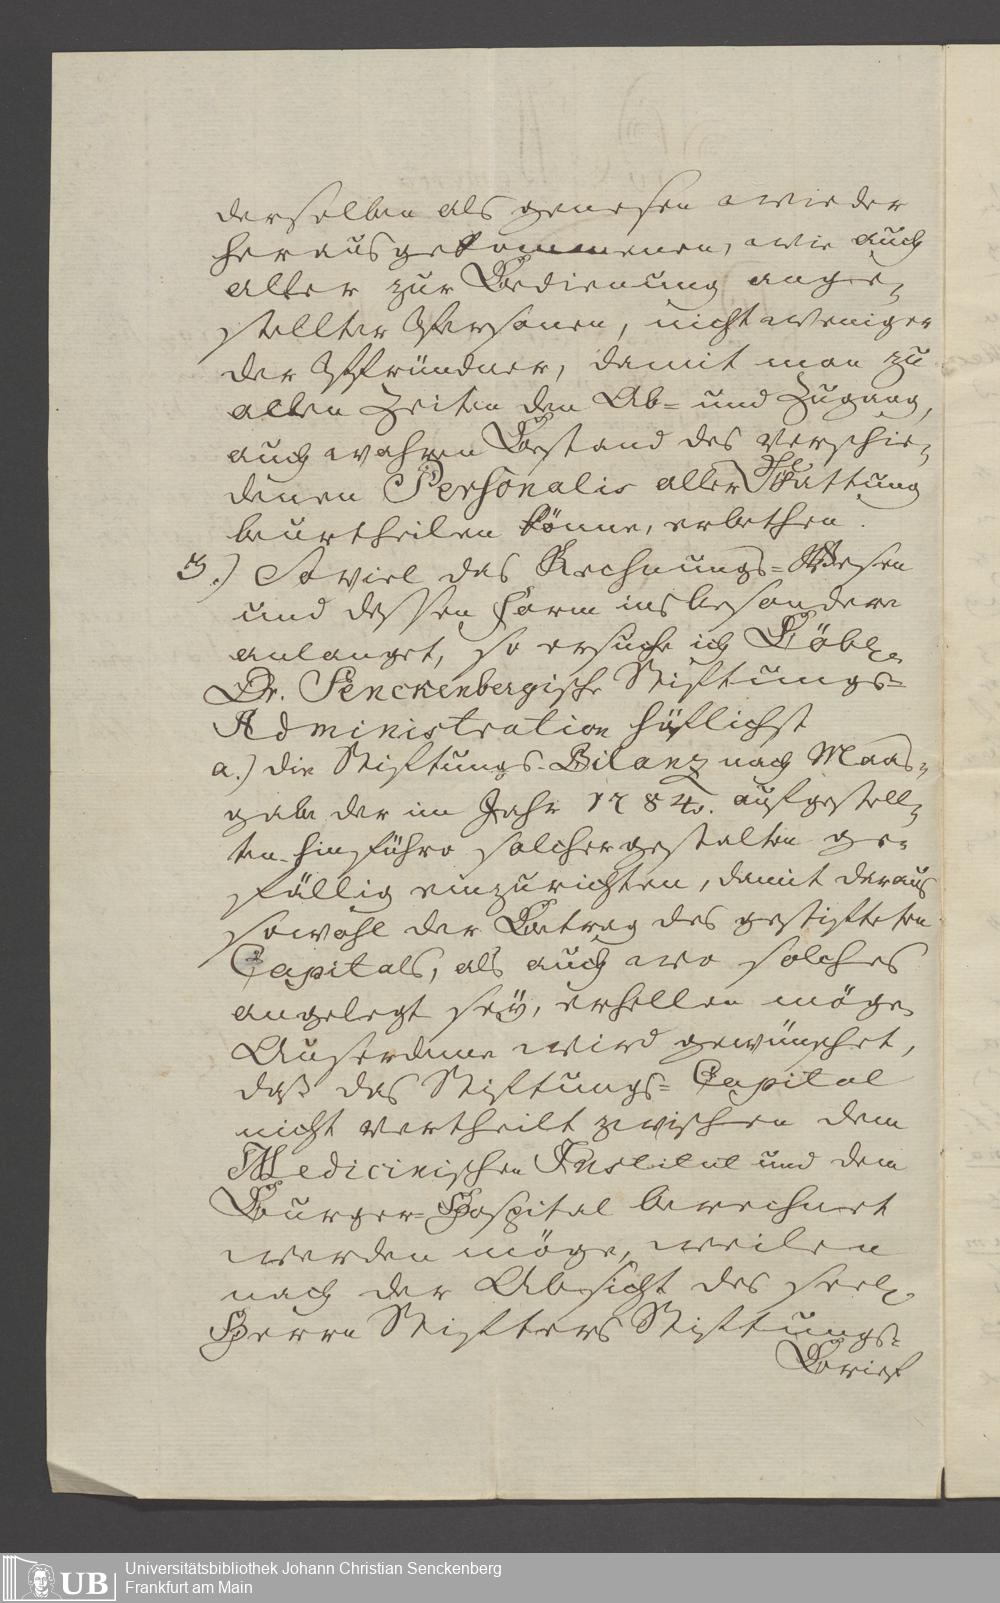 derselben als genesen wieder
herausgekommenen, wie auch
aller zur Bedienung ange-
stellter Personen, nicht weniger
der Pfründner, damit man zu
allen Zeiten den Ab- und Zugang,
auch wahren Bestand des verschie-
denen Personalis aller Gattung
beurtheilen könne, erbethen.
3.) Soviel das Rechnungs-Wesen
und dessen Form insbesondere
anlanget, so ersuche ich Löbl.
Dr. Senckenbergische Stiftungs-
Administration höflichst
a.) die Stiftungs-Bilanz nach Maas-
gabe der im Jahr 1784. aufgestell-
ten hinführo solchergestalten ge-
fällig einzurichten, damit daraus
sowohl der Betrag des gestifteten
Capitals, als auch wo solches
angelegt seÿ, erhellen möge.
Auserdeme wird gewünschet,
daß das Stiftungs-Capital
nicht vertheilt zwischen dem
Medicinischen Institut und dem
Burger-Hospital berechnet
werden möge, weilen
nach der Absicht des seel.
Herrn Stifters Stiftungs-
Brief
UB
Universitätsbibliothek Johann Christian Senckenberg
Frankfurt am Main